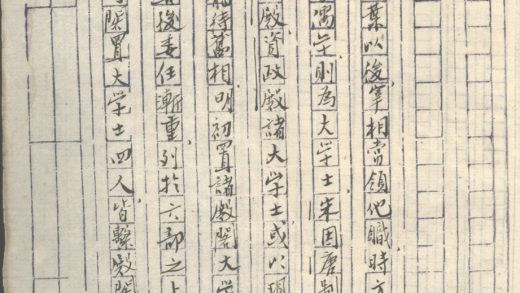 葉以後宰相常領他職時方
偶之則為大学士宋因唐制
殿資政殿諸大学士或以現
待舊相明初置諸殿閣大学
後委任漸重列於六部之上
閣置大学士四人皆繫殿閣